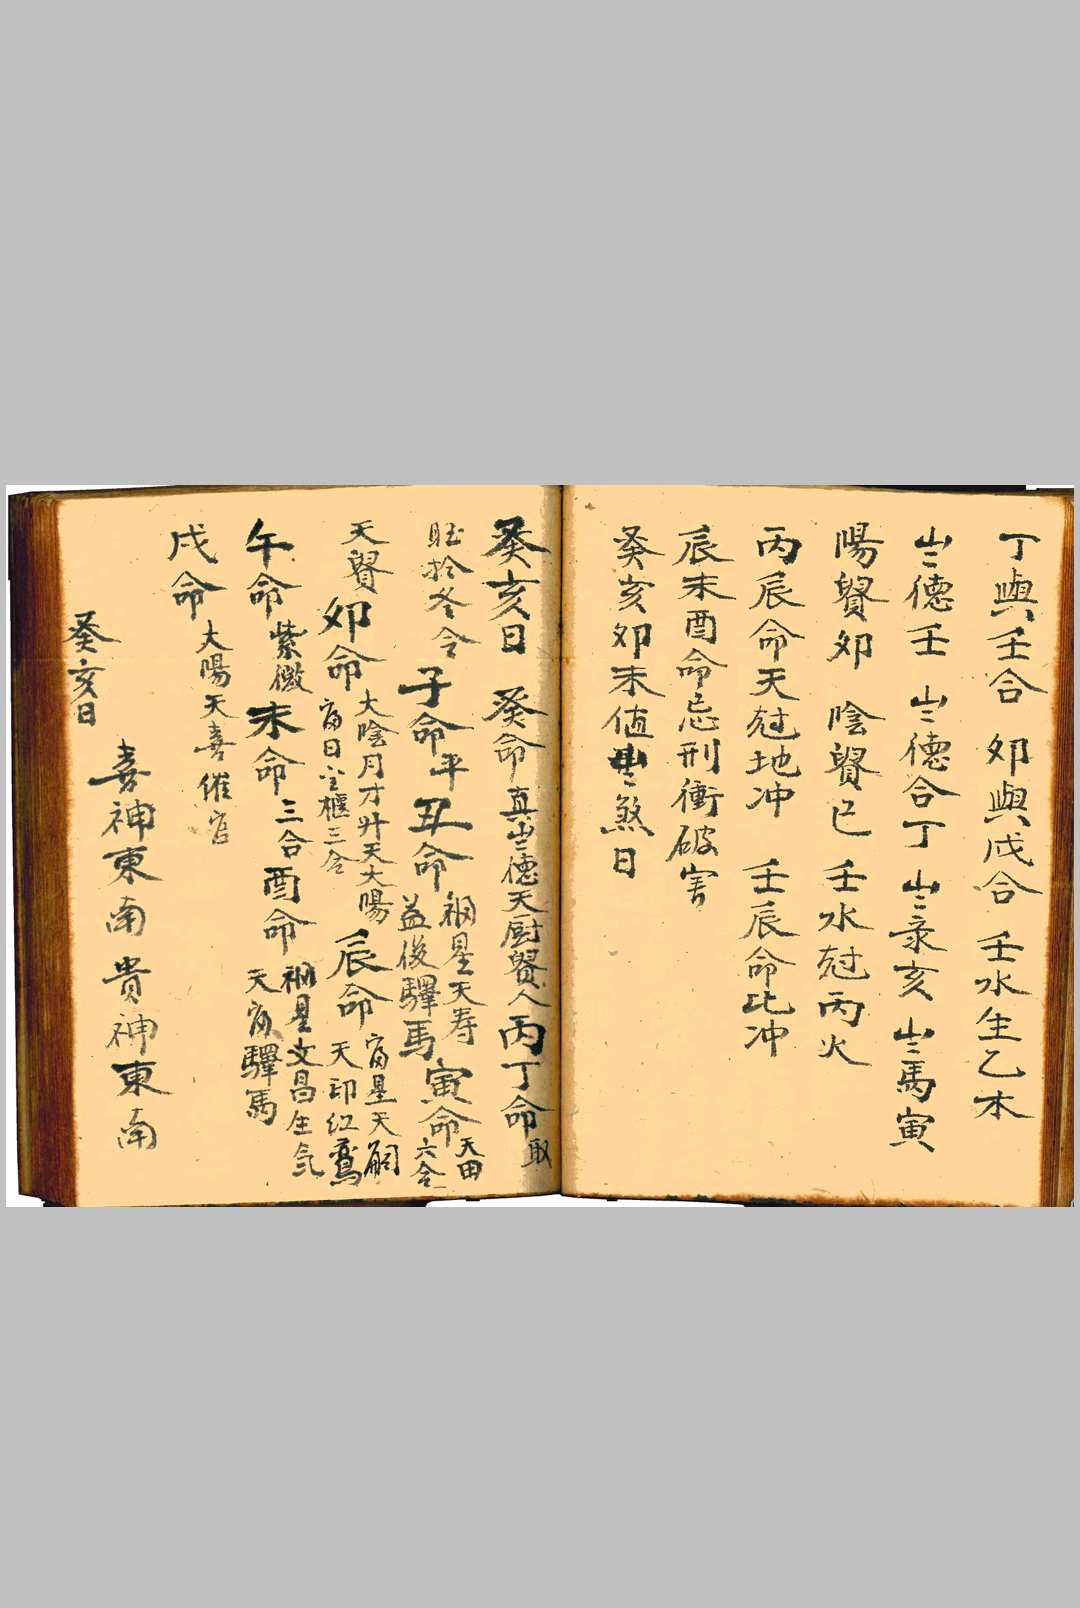 丁與壬合 卯與戌合 壬水生乙木
歲德壬 歲德合丁 歲录亥 歲馬寅
陽貴卯 陰貴巳 壬水尅丙火
丙辰命天尅地冲 壬辰命比冲
辰未酉命忌刑衝破害
癸亥卯未值煞日
癸亥日 癸命真歲德天厨貴人丙丁命取
於冬令 子命平丑命福星天寿益後驛馬寅命天田六合
天貴卯命大陰月才升天大陽富日三合辰命富星天嗣天印红鸞
午命紫微未命三合酉命福星文昌生氣天富驛馬
戌命大陽天喜催官
癸亥日
喜神東南貴神東南